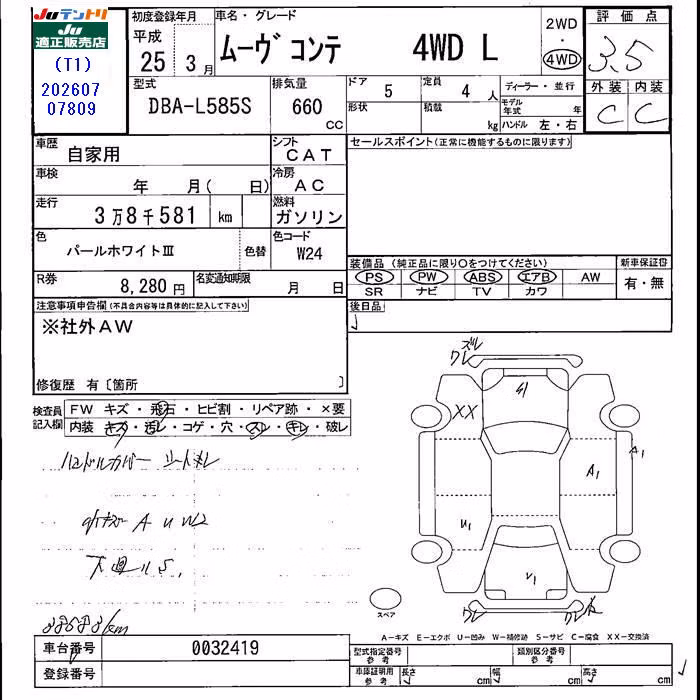 JUテントリ
JU
適正販売店
(T1)
202607
07809
初度登録年月
平成
25 3月
車名・グレード
ムーヴ コンテ 4WD L
2WD
・
4WD
評価点
3.5
外装 内装
C C
型式
DBA-L585S
排気量
660
CC
ドア 5
定員 4 人
形状
積載 kg
ディーラー・並行
モデル年式 年
ハンドル 左・右
車歴
自家用
シフト
CAT
セールスポイント(正常に機能するものに限ります)
車検
年 月( 日)
冷房
AC
走行
3万8千581 km
燃料
ガソリン
色
パールホワイトⅢ
色替
色コード
W24
装備品(純正品に限り○をつけてください)
PS PW ABS エアB AW
SR ナビ TV カワ
新車保証書
有・無
R券
8,280円
名変通知期限
月 日
後日品
注意事項申告欄(不具合内容等は具体的に記入して下さい)
※社外AW
修復歴 有〔箇所 〕
検査員
記入欄
FW キズ・飛石・ヒビ割・リペア跡・×要
内装 キズ・汚レ・コゲ・穴・スレ・キレ・破レ
ハンドルカバー シートスレ
A U W2
下廻りS.
38583km
ズレ
ワレ
XX
A1
A1
U1
V1
ワレ
スペア
A-キズ E-エクボ U-凹み W-補修跡 S-サビ C-腐食 XX-交換済
車台番号
0032419
登録番号
型式指定番号
参考
類別区分番号
参考
車庫証明用
参考
長さ cm
幅 cm
高さ cm